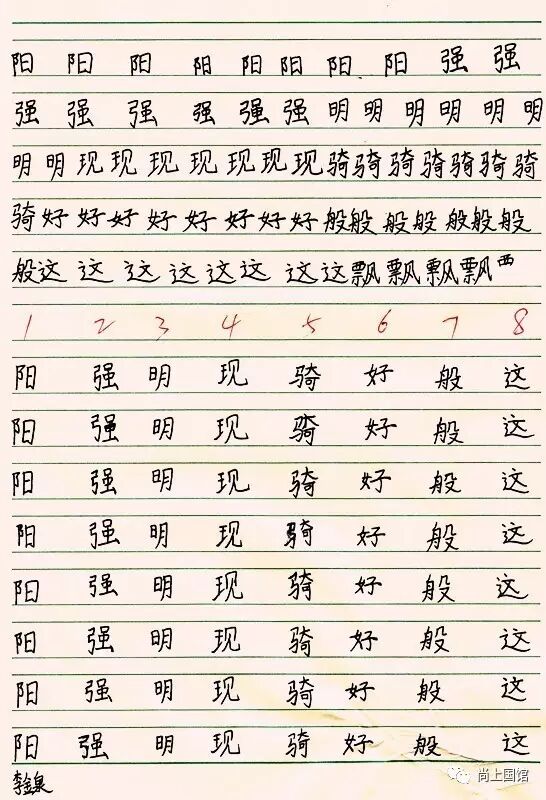 阳 阳 阳 阳 阳 阳 阳 阳 强 强
强 强 强 强 强 强 明 明 明 明 明 明
明 明 现 现 现 现 现 现 现 骑 骑 骑 骑 骑 骑 骑
骑 好 好 好 好 好 好 好 好 般 般 般 般 般 般 般
般 这 这 这 这 这 这 这 这 飘 飘 飘 飘 西
1 2 3 4 5 6 7 8
阳 强 明 现 骑 好 般 这
阳 强 明 现 骑 好 般 这
阳 强 明 现 骑 好 般 这
阳 强 明 现 骑 好 般 这
阳 强 明 现 骑 好 般 这
阳 强 明 现 骑 好 般 这
阳 强 明 现 骑 好 般 这
阳 强 明 现 骑 好 般 这
李金泉
尚上国馆